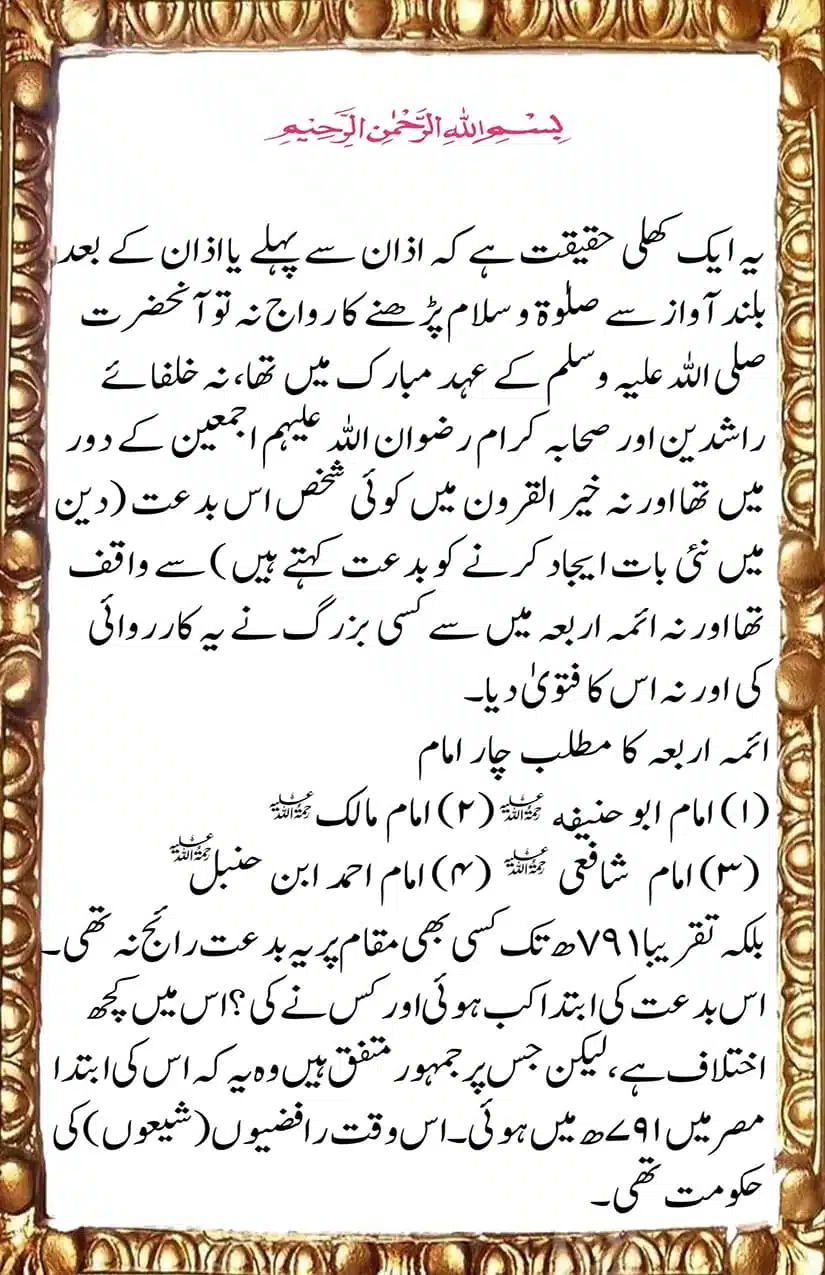 بسم الله الرحمن الرحیم
یہ ایک کھلی حقیقت ہے کہ اذان سے پہلے یا اذان کے بعد
بلند آواز سے صلوٰۃ و سلام پڑھنے کا رواج نہ تو آنحضرت
صلی اللہ علیہ وسلم کے عہد مبارک میں تھا، نہ خلفائے
راشدین اور صحابہ کرام رضوان اللہ علیہم اجمعین کے دور
میں تھا اور نہ خیر القرون میں کوئی شخص اس بدعت (دین
میں نئی بات ایجاد کرنے کو بدعت کہتے ہیں) سے واقف
تھا اور نہ ائمہ اربعہ میں سے کسی بزرگ نے یہ کارروائی
کی اور نہ اس کا فتویٰ دیا۔
ائمہ اربعہ کا مطلب چار امام
(۱) امام ابو حنیفہ رحمۃ اللہ علیہ (۲) امام مالک رحمۃ اللہ علیہ
(۳) امام شافعی رحمۃ اللہ علیہ (۴) امام احمد ابن حنبل رحمۃ اللہ علیہ
بلکہ تقریبا ۷۹۱ھ تک کسی بھی مقام پر یہ بدعت رائج نہ تھی۔
اس بدعت کی ابتدا کب ہوئی اور کس نے کی؟ اس میں کچھ
اختلاف ہے، لیکن جس پر جمہور متفق ہیں وہ یہ کہ اس کی ابتدا
مصر میں ۷۹۱ھ میں ہوئی۔ اس وقت رافضیوں (شیعوں) کی
حکومت تھی۔